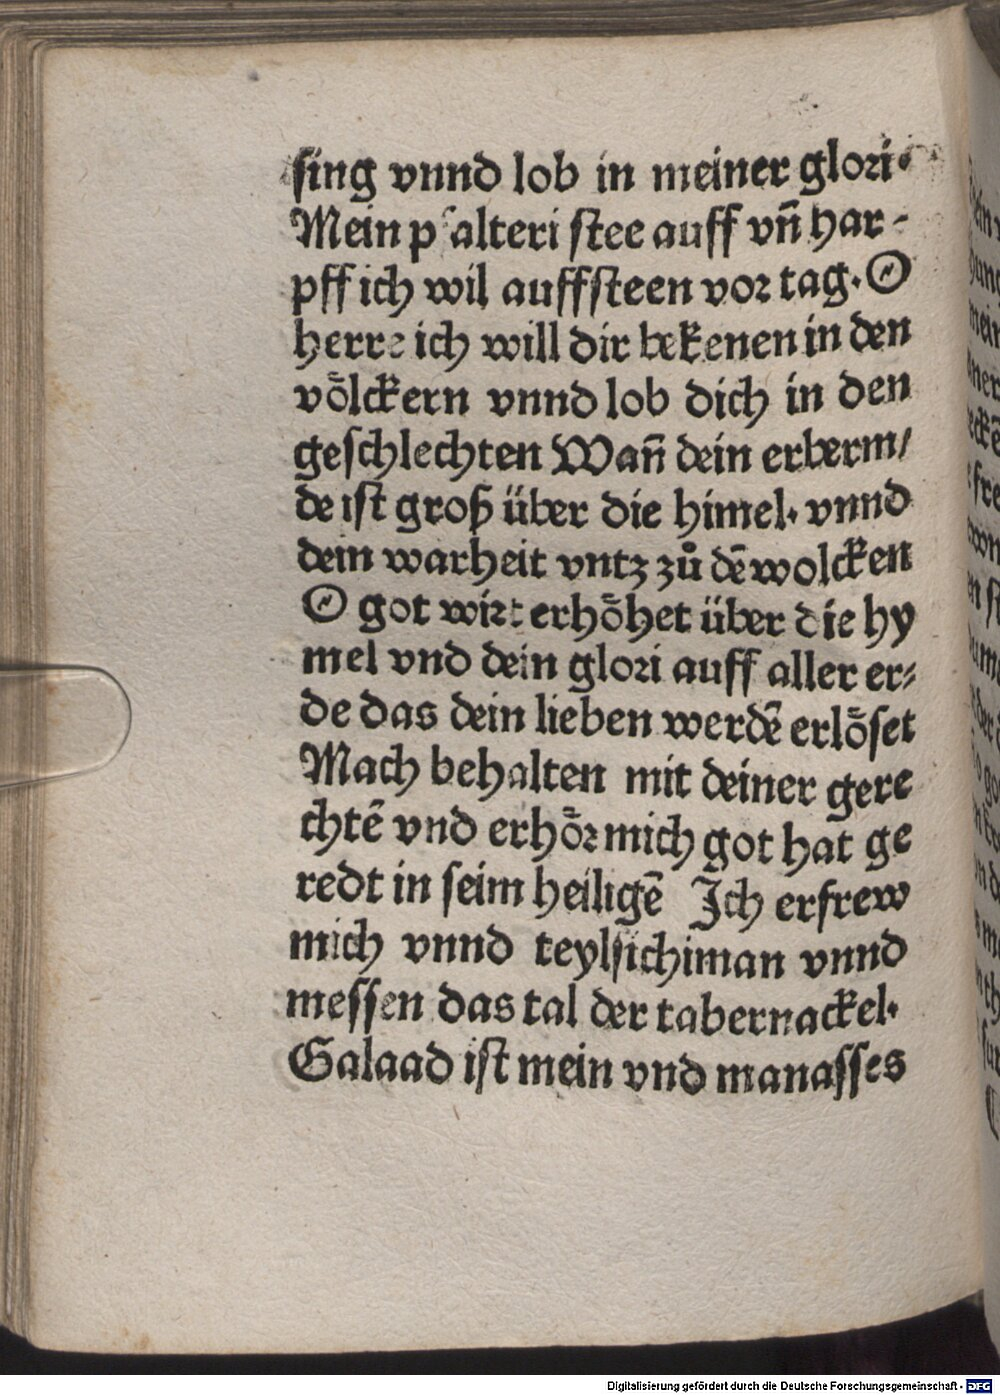 sing vnnd lob in meiner glori·
Mein psalteri stee auff vñ har-
pff ich wil auffsteen vor tag. O
herre ich will dir bekenen in den
völckern vnnd lob dich in den
geschlechten Wañ dein erberm/
de ist groß über die himel. vnnd
dein warheit vntz zů dē wolcken
O got wirt erhöhet über die hy
mel vnd dein glori auff aller er-
de das dein lieben werdē erlöset
Mach behalten mit deiner gere
chtē vnd erhör mich got hat ge
redt in seim heiligē Ich erfrew
mich vnnd teylsichiman vnnd
messen das tal der tabernackel.
Galaad ist mein vnd manasses
Digitalisierung gefördert durch die Deutsche Forschungsgemeinschaft - DFG